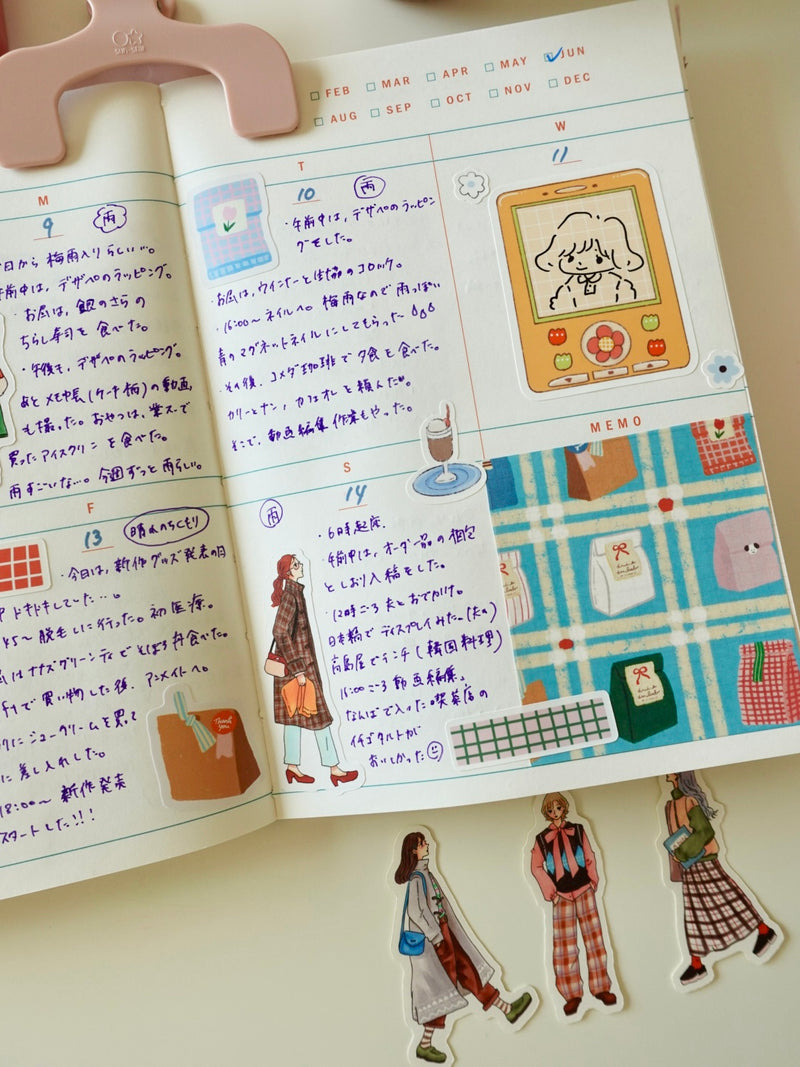 FEB MAR APR MAY JUN
AUG SEP OCT NOV DEC
M
9
雨
日から 梅雨入りらしい…。
午前中は、デザペのラッピング。
・お昼は、銀のさらの
ちらし寿司を食べた。
・午後も、デザペのラッピング。
あとメモ帳(ケーキ柄)の動画
も撮った。おやつは、業スで
買ったアイスクリンを食べた。
雨すごいな…。今週ずっと雨らしい。
T
10
雨
・午前中は、デザペのラッピン
グをした。
・お昼は、ウインナーと生協のコロッケ。
・16:00〜ネイルへ。梅雨なので雨っぽい
青のマグネットネイルにしてもらった
・その後、コメダ珈琲で夕食を食べた。
カリーとナン、カフェオレを頼んだ。
そこで、動画編集作業もやった。
W
11
F
13
晴れのちくもり
・今日は、新作グッズ発表の日
ドキドキしていた…。
45〜 脱毛しに行った。初医療。
はナナズグリーンティでそぼろ丼食べた。
で買い物した後、アニメイトへ。
にシュークリームを買って
に差し入れした。
18:00〜 新作発売
スタートした!!!
Thank you
S
14
雨
・6時起床
・午前中は、オーダー品の梱包
としおり入稿をした。
・12時ごろ夫とおでかけ。
日本橋でディスプレイみた。(夫の)
高島屋でランチ(韓国料理)
16:00ごろ動画編集。
なんばで入った喫茶店の
イチゴタルトが
おいしかった
MEMO